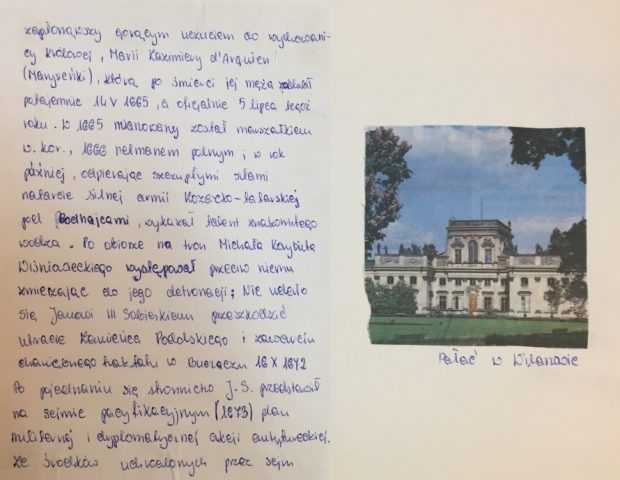 zapłonąwszy gorącym uczuciem do wychowani-
cy królowej, Marii Kazimiery d'Arquien
(Marysieńki), którą po śmierci jej męża zaślubił
potajemnie 14 V 1665, a oficjalnie 5 lipca tegoż
roku. W 1665 mianowany został marszałkiem
w. kor., 1666 hetmanem polnym; w rok
później, odpierając szczupłymi siłami
natarcie silnej armii Kozacko-tatarskiej
pod Podhajcami, wykazał talent znakomitego
wodza. Po obiorze na tron Michała Korybuta
Wiśniowieckiego występował przeciw niemu
zmierzając do jego detronizacji; Nie udało
się Janowi III Sobieskiemu przeszkodzić
utracie Kamieńca Podolskiego i zawarciu
traktatu w Buczaczu 16 X 1672
Po pojednaniu się stronnictw J. S. przedstawił
na sejmie pacyfikacyjnym (1673) plan
militarnej i dyplomatycznej akcji antytureckiej.
Ze środków uchwalonych przez sejm
Pałac w Wilanowie